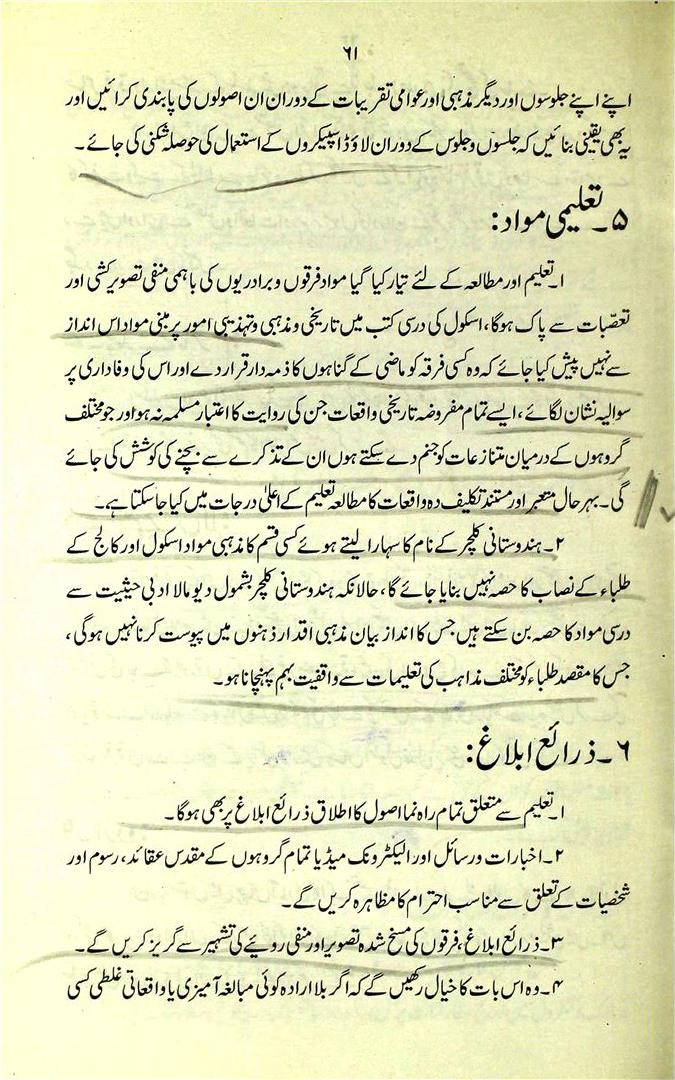 ۶۱
اپنے اپنے جلوسوں اور دیگر مذہبی اور عوامی تقریبات کے دوران ان اصولوں کی پابندی کرائیں اور
یہ بھی یقینی بنائیں کہ جلسوں و جلوس کے دوران لاؤڈ اسپیکروں کے استعمال کی حوصلہ شکنی کی جائے۔
۵۔ تعلیمی مواد:
۱۔ تعلیم اور مطالعہ کے لئے تیار کیا گیا مواد فرقوں و برادریوں کی باہمی منفی تصویر کشی اور
تعصّبات سے پاک ہوگا، اسکول کی درسی کتب میں تاریخی و مذہبی و تہذیبی امور پر مبنی مواد اس انداز
سے نہیں پیش کیا جائے کہ وہ کسی فرقہ کو ماضی کے گناہوں کا ذمہ دار قرار دے اور اس کی وفاداری پر
سوالیہ نشان لگائے، ایسے تمام مفروضہ تاریخی واقعات جن کی روایت کا اعتبار مسلمہ نہ ہو اور جو مختلف
گروہوں کے درمیان متنازعات کو جنم دے سکتے ہوں ان کے تذکرے سے بچنے کی کوشش کی جائے
گی۔ بہرحال معتبر اور مستند تکلیف دہ واقعات کا مطالعہ تعلیم کے اعلیٰ درجات میں کیا جاسکتا ہے۔
۲۔ ہندوستانی کلچر کے نام کا سہارا لیتے ہوئے کسی قسم کا مذہبی مواد اسکول اور کالج کے
طلباء کے نصاب کا حصہ نہیں بنایا جائے گا، حالانکہ ہندوستانی کلچر بشمول دیومالا ادبی حیثیت سے
درسی مواد کا حصہ بن سکتے ہیں جس کا انداز بیان مذہبی اقدار ذہنوں میں پیوست کرنا نہیں ہوگی،
جس کا مقصد طلباء کو مختلف مذاہب کی تعلیمات سے واقفیت بہم پہنچانا ہو۔
۶۔ ذرائع ابلاغ:
۱۔ تعلیم سے متعلق تمام راہ نما اصول کا اطلاق ذرائع ابلاغ پر بھی ہوگا۔
۲۔ اخبارات و رسائل اور الیکٹرونک میڈیا تمام گروہوں کے مقدس عقائد، رسوم اور
شخصیات کے تعلق سے مناسب احترام کا مظاہرہ کریں گے۔
۳۔ ذرائع ابلاغ، فرقوں کی مسخ شدہ تصویر اور منفی رویئے کی تشہیر سے گریز کریں گے۔
۴۔ وہ اس بات کا خیال رکھیں گے کہ اگر بلا ارادہ کوئی مبالغہ آمیزی یا واقعاتی غلطی کسی